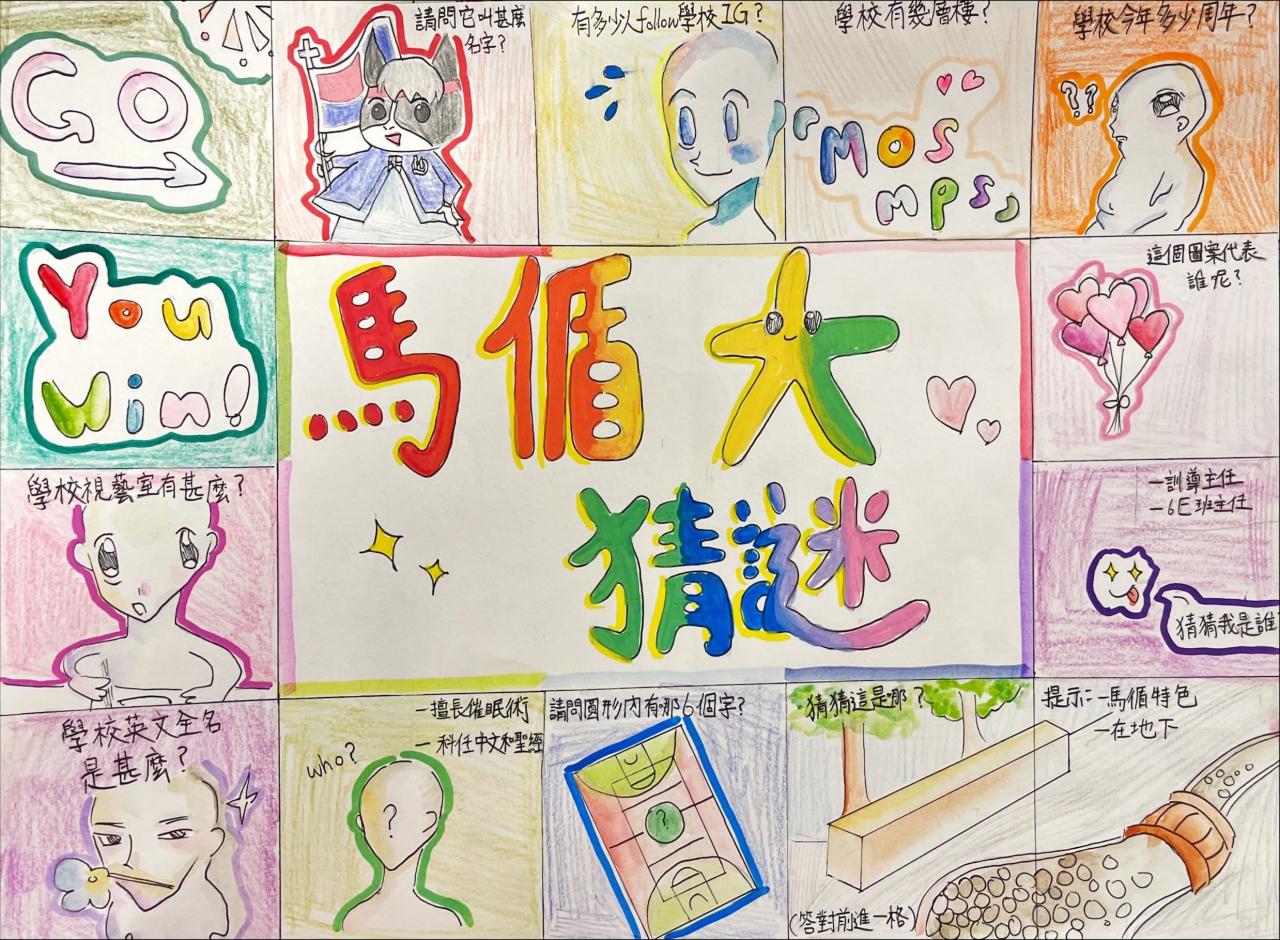 GO
請問它叫甚麼
名字?
有多少人follow學校IG?
學校有幾層樓?
MOS
mps
學校今年多少周年?
??
You
Win!
馬循大
猜謎
這個圖案代表
誰呢?
學校視藝室有甚麼?
-訓導主任
-6E班主任
猜猜我是誰
學校英文全名
是甚麼?
who?
-擅長催眠術
-科任中文和聖經
請問圓形內有哪6個字?
?
猜猜這是哪?
(答對前進一格)
提示:-馬循特色
-在地下